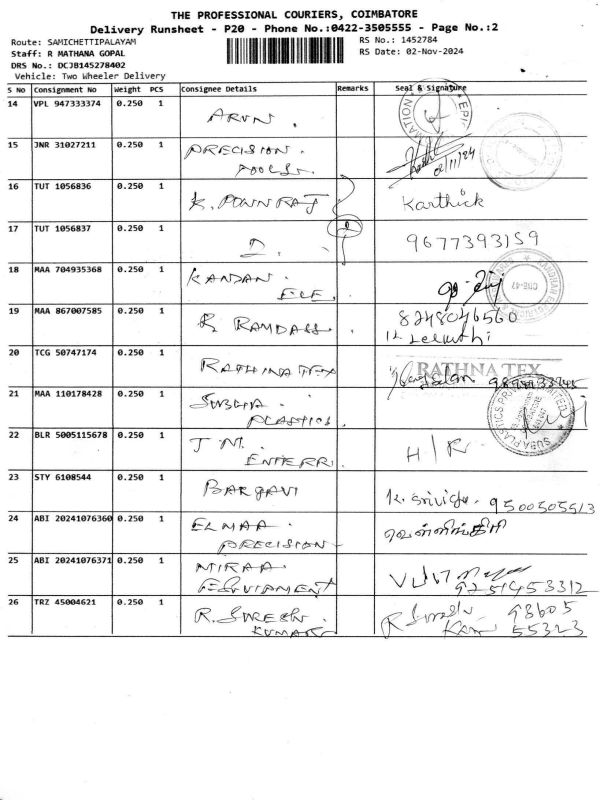 THE PROFESSIONAL COURIERS, COIMBATORE
Delivery Runsheet - P20 - Phone No.:0422-3505555 - Page No.:2
Route: SAMICHETTIPALAYAM
RS No.: 1452784
Staff: R MATHANA GOPAL
RS Date: 02-Nov-2024
DRS No.: DCJB145278402
Vehicle: Two Wheeler Delivery
S No Consignment No Weight PCS Consignee Details Remarks Seal & Signature
14 VPL 947333374 0.250 1 ARUN.
15 JNR 31027211 0.250 1 PRECISION. TOOLS. 2/11/24
16 TUT 1056836 0.250 1 K. PONNRAJ Karthick
17 TUT 1056837 0.250 1 D. 9677393159
18 MAA 704935368 0.250 1 KANDAN. ELE.
19 MAA 867007585 0.250 1 R RAMDASS. 8248046560
20 TCG 50747174 0.250 1 RATHINA TEX RATHNA TEX
21 MAA 110178428 0.250 1 SUBHA. PLASTICS.
22 BLR 5005115678 0.250 1 J M. ENTERR. H/R.
23 STY 6108544 0.250 1 BARGAVI 9500505513
24 ABI 20241076360 0.250 1 ELMAA. PRECISION வெள்ளிங்கிரி
25 ABI 20241076371 0.250 1 MIRAA EQUIPMENT 9251453312
26 TRZ 45004621 0.250 1 R. SURESH KUMAR R Suresh Kum 98605 55323